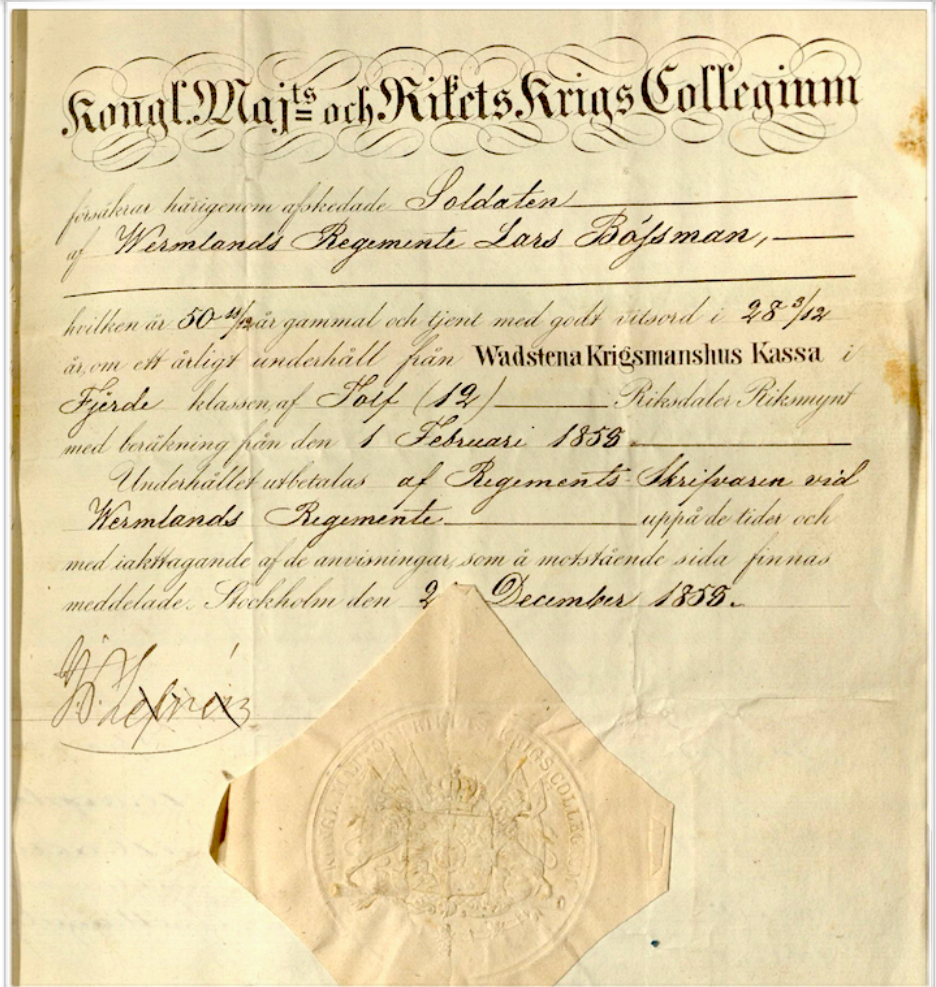 Kongl. Maj:ts och Rikets Krigs Collegium
försäkrar härigenom afskedade Soldaten
af Wermlands Regemente Lars Bössman,
hvilken är 50 11/12 år gammal och tjent med godt vitsord i 28 3/12
år, om ett årligt underhåll från Wadstena Krigsmanshus Kassa i
Fjerde klassen, af Tolf (12) Riksdaler Riksmynt
med beräkning från den 1 Februari 1858
Underhållet utbetalas af Regements-Skrifvaren vid
Wermlands Regemente uppå de tider och
med iakttagande af de anvisningar, som å motstående sida finnas
meddelade. Stockholm den 2 December 1858.
KRIGS COLLEGIUM